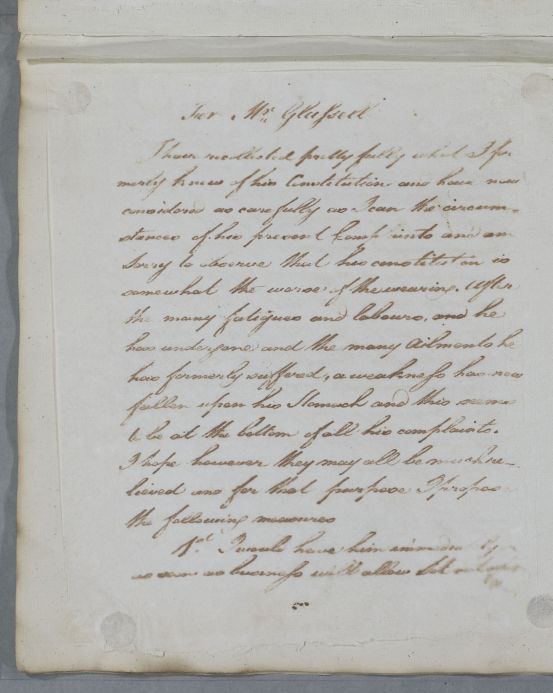 For Mr. Glassell
I have recollected pretty fully what I for
merly knew of his Constitution and have now
considered as carefully as I can the circum-
stances of his present Complaints and am
sorry to observe that his constitution is
somewhat the worse of the wearing. After
the many fatigues and labours, and he
has undergone and the many Ailments he
has formerly suffered, a weakness has now
fallen upon his Stomach and this seems
to be at the bottom of all his complaints.
I hope however they may all be much re-
lieved and for that purpose I propose
the following measures
1st. I would have him immediately
as soon as business will allow Set